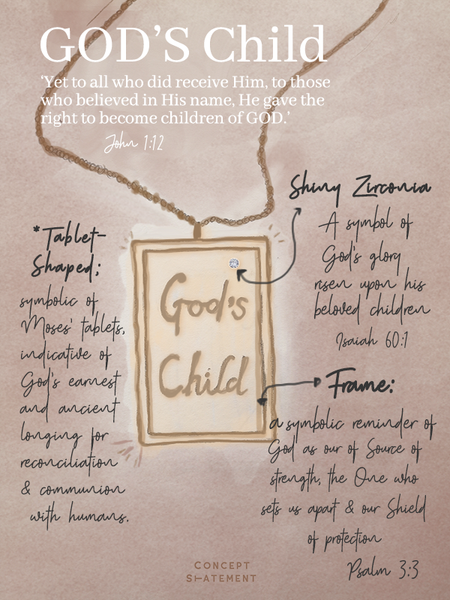 GOD'S Child
'Yet to all who did receive Him, to those
who believed in His name, He gave the
right to become children of GOD.'
John 1:12
Shiny Zirconia
A symbol of
God's glory
risen upon his
beloved children
Isaiah 60:1
*Tablet-
Shaped;
symbolic of
Moses' tablets,
indicative of
God's earnest
and ancient
longing for
reconciliation
& communion
with humans.
God's
Child
Frame:
a symbolic reminder of
God as our of Source of
strength, the One who
sets us apart & our Shield
of protection
Psalm 3:3
CONCEPT
STATEMENT